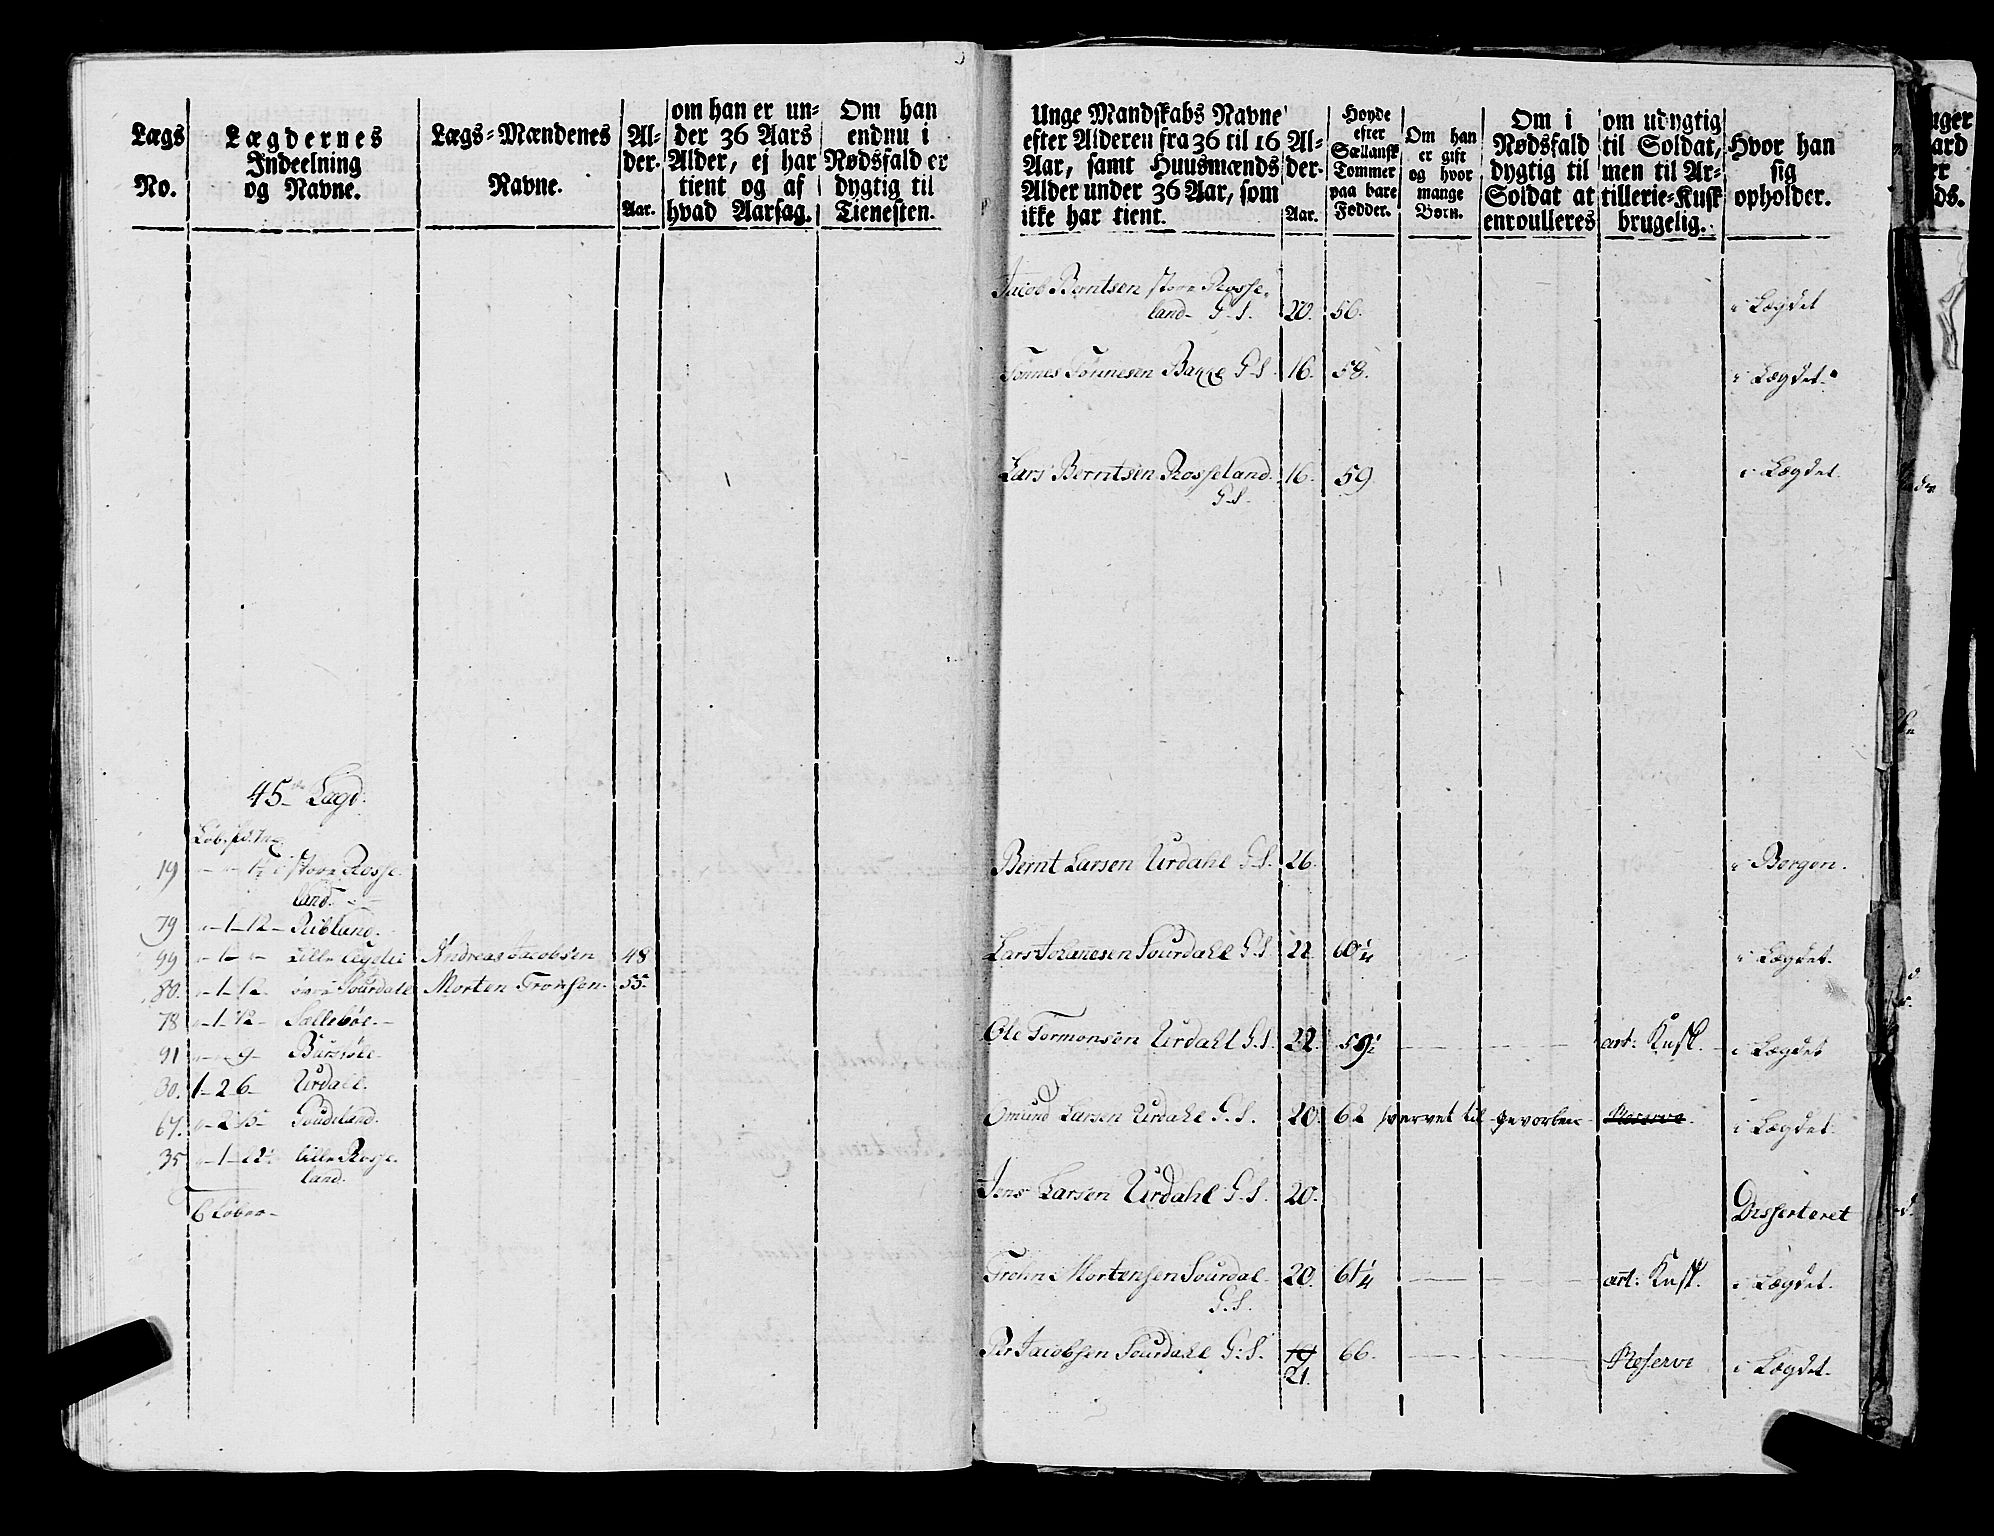 Lægs No.
Lægdernes Indeelning og Navne.
Lægs-Mændenes Navne.
Al-der. Aar.
om han er un-der 36 Aars Alder, ej har tient og af hvad Aarsag.
Om han endnu i Nødsfald er dygtig til Tienesten.
45 Lægd.
19 store Rosse-
land.
79 1-12 - Riblund.
99 Lille Andreas Jacobsen 48
80. 1-12. Sourdall Morten Tronsen. 55.
78 1-12 - Sællebøe.
91 9-
30. 1-2 6- Urdall.
67.
35 lille Rosse-
land.
6 Løber
Unge Mandskabs Navne efter Alderen fra 36 til 16 Aar, samt Huusmænds Alder under 36 Aar, som ikke har tient.
Al-der. Aar.
Høyde efter Sællansk Tommer paa bare Fødder.
Om han er gift og hvor mange Børn.
Om i Nødsfald dygtig til Soldat at enroulleres
om udygtig til Soldat, men til Ar-tillerie-Kusk brugelig.
Hvor han sig opholder.
Jacob Berntsen store Rosse-
land G. S. 20. 56. i Lægdet
Tønnes Tønnesen Bakke G. S. 16. 58. i Lægdet.
Lars Berntsen Rosseland 16. 59 i Lægdet.
G. S.
Bernt Larsen Urdahl G. S. 26. i Bergen.
Lars Johannesen Sourdahl G. S 22 60 1/4 i Lægdet.
Ole Tormonsen Urdahl G. S. 22. 59 art: Kusk. i Lægdet
Omund Larsen Urdahl G. S. 20. 62 hvervet til gevorben Reserve i Lægdet
Jens Larsen Urdahl G. S. 20. Desserteret
Trohn Mortensen Sourdal 20. 61 1/4 art: Kusk. i Lægdet.
G. S.
Per Jacobsen Sourdahl G: S. 19 66. Reserve i Lægdet.
21.